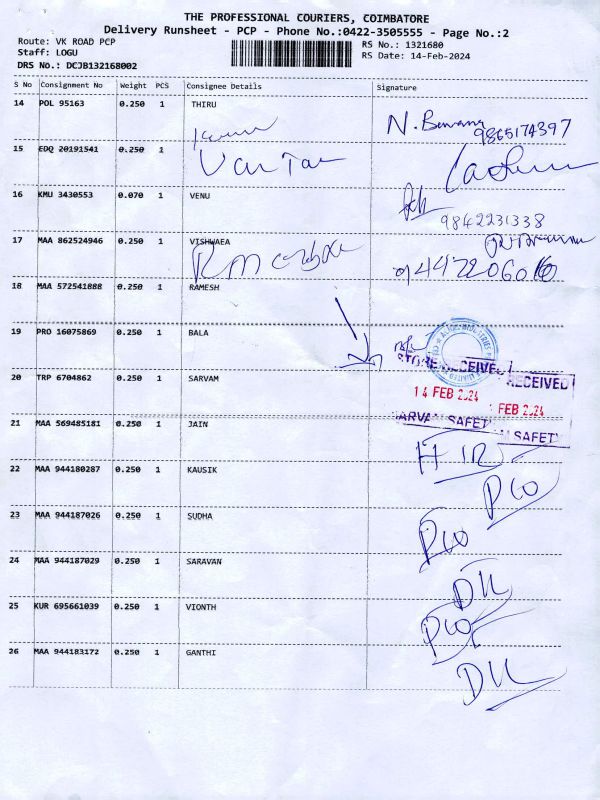 THE PROFESSIONAL COURIERS, COIMBATORE
Delivery Runsheet - PCP - Phone No.:0422-3505555 - Page No.:2
Route: VK ROAD PCP
RS No.: 1321680
Staff: LOGU
RS Date: 14-Feb-2024
DRS No.: DCJB132168002
S No Consignment No Weight PCS Consignee Details Signature
14 POL 95163 0.250 1 THIRU
9865174397
15 EDQ 20191541 0.250 1
16 KMU 3430553 0.070 1 VENU
9842231338
17 MAA 862524946 0.250 1 VISHWAEA
18 MAA 572541888 0.250 1 RAMESH
19 PRO 16075869 0.250 1 BALA
STORE RECEIVED
RECEIVED
20 TRP 6704862 0.250 1 SARVAM
14 FEB 2024
FEB 2024
SARVAM SAFETY
SAFETY
21 MAA 569485181 0.250 1 JAIN
22 MAA 944180287 0.250 1 KAUSIK
23 MAA 944187026 0.250 1 SUDHA
24 MAA 944187029 0.250 1 SARAVAN
25 KUR 695661039 0.250 1 VIONTH
26 MAA 944183172 0.250 1 GANTHI